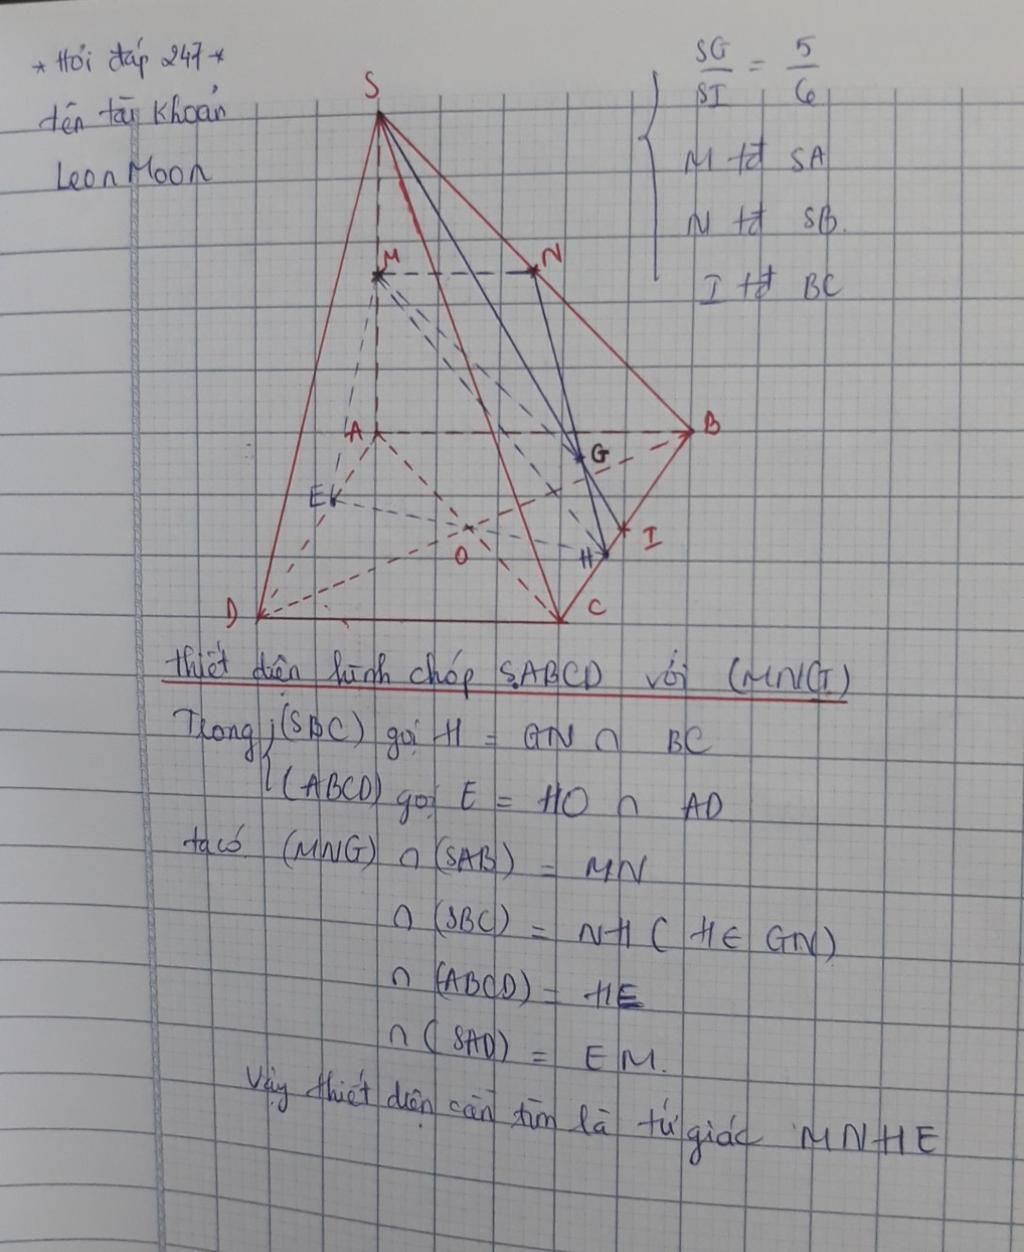 * Hỏi đáp 247 *
tên tài khoản
Leon Moon
SG/SI = 5/6
M tđ SA
N tđ SB.
I tđ BC
S
M
N
A
B
G
E
I
O
H
D
C
thiết diện hình chóp S.ABCD với (MNG)
Trong (SBC) gọi H = GN ∩ BC
(ABCD) gọi E = HO ∩ AD
ta có (MNG) ∩ (SAB) = MN
∩ (SBC) = NH ( H ∈ GN)
∩ (ABCD) = HE
∩ ( SAD) = EM.
Vậy thiết diện cần tìm là tứ giác MNHE